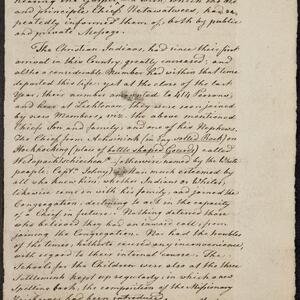 and principal Chief Netawatwees had re-
peatedly informed them of, both by public
and private Message.
The Christian Indians, had since their first
arrival in this Country, greatly increased; and
altho a considerable Number had within that time
departed this life; yet at the close of the last
Year; their number was to 414 Persons;
and here at Lichtenau, they were soon joined
by new Members, viz: the above mentioned
Chiefs Son and family; and one of his Nephews.
The Chief from
Hockhocking (place of bottle shaped Gourds) called
(otherwise named by the White
people; Capt: Johny) a Man much esteemed by
all who knew him, whether Indians or Whites;
likewise came in with his family, and joined the
Congregation, declining to act in the capacity
of a Chief in future. Nothing deterred those
who believed they had an inward call, from
joining the Congregation. Nor had the troubles
of the times, hitherto caused any inconvenience,
with regard to their internal course. The
Schools for the Children were also at the three
Settlements kept up regularly, in which a new
Spelling book, the composition of the Missionary
Zeisberger had been introduced.